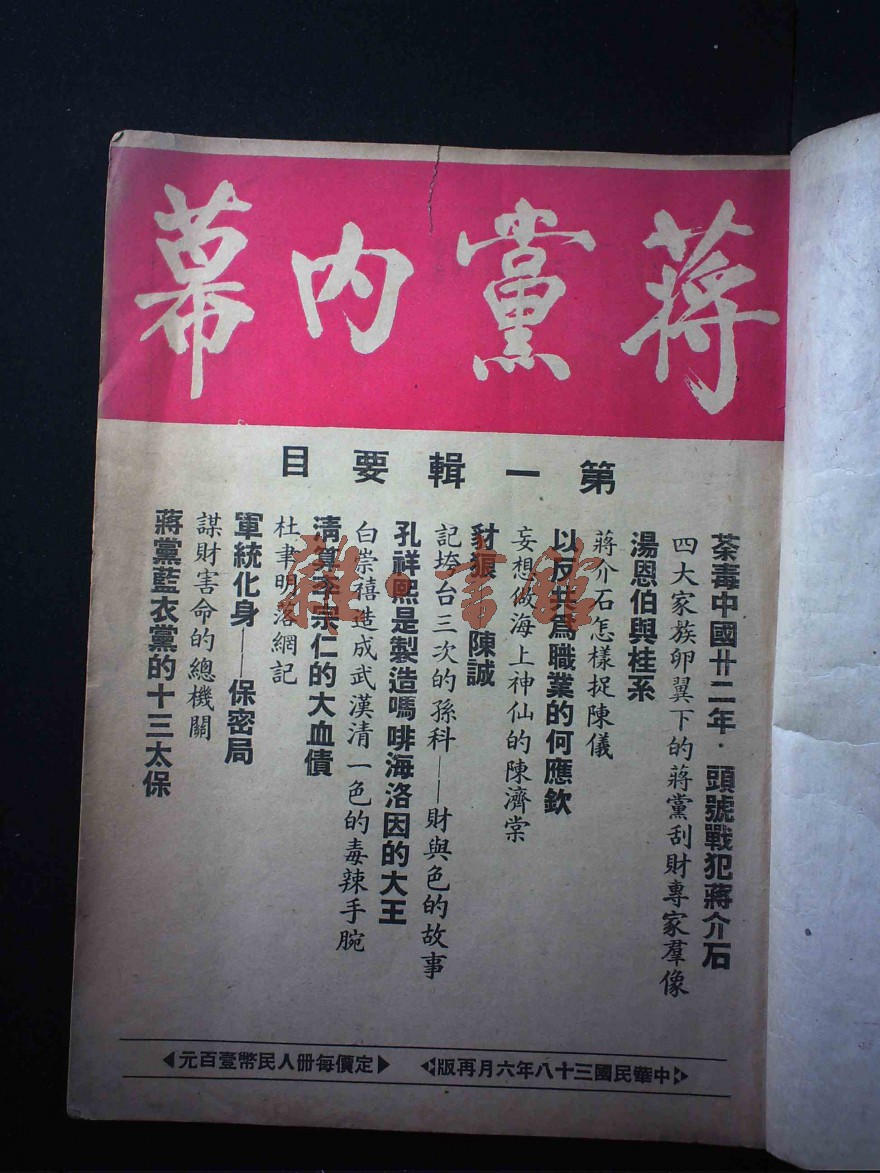 蔣黨內幕
第一輯要目
荼毒中國卄二年·頭號戰犯蔣介石
四大家族卵翼下的蔣黨刮財專家羣像
湯恩伯與桂系
蔣介石怎樣捉陳儀
以反共爲職業的何應欽
妄想做海上神仙的陳濟棠
豺狼 陳誠
記垮台三次的孫科——財與色的故事
孔祥熙是製造嗎啡海洛因的大王
白崇禧造成武漢清一色的毒辣手腕
清算李宗仁的大血債
杜聿明落網記
軍統化身——保密局
謀財害命的總機關
蔣黨藍衣黨的十三太保
中華民國三十八年六月再版
定價每册人民幣壹百元
雜·書館